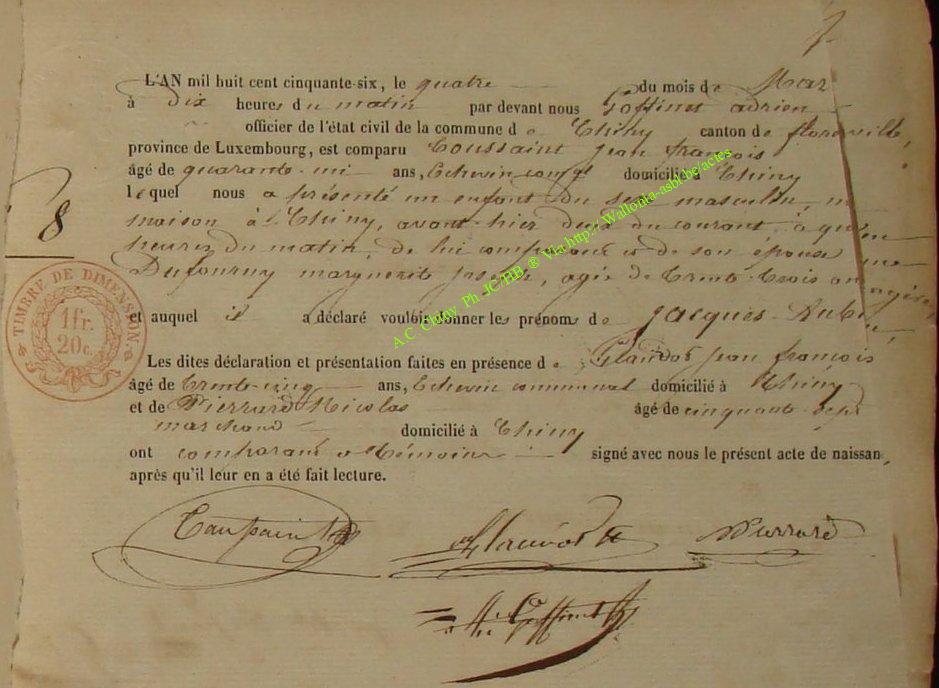 L'AN mil huit cent cinquante-six, le quatre du mois de Mar
à dix heures du matin par devant nous Goffinet adrien
officier de l'état civil de la commune de Chiny canton de florenville,
province de Luxembourg, est comparu Toussaint jean françois
âgé de quarante-un ans, Echevin domicilié à Chiny
lequel nous a présenté un enfant du sexe masculin, n
maison à Chiny, avant-hier deux du courant, à
heures du matin, de lui comparant et de son épouse
Dufourny marguerite josephe, agée de trente-trois ans
et auquel il a déclaré vouloir donner les prénoms de Jacques-Aubi
Les dites déclaration et présentation faites en présence de Glaudot jean françois
âgé de trente-cinq ans, Echevin communal domicilié à Chiny
et de Pierrard Nicolas âgé de cinquante-sept
marchand domicilié à Chiny
ont comparant et témoins signé avec nous le présent acte de naissan
après qu'il leur en a été fait lecture.
8
TIMBRE DE DIMENSION.
1 fr.
20 c.
A.C. Chiny Ph JC/BB ® Via http://Wallonia-asbl.be/actes
Toussaint
Glaudot
Pierrard
Goffinet